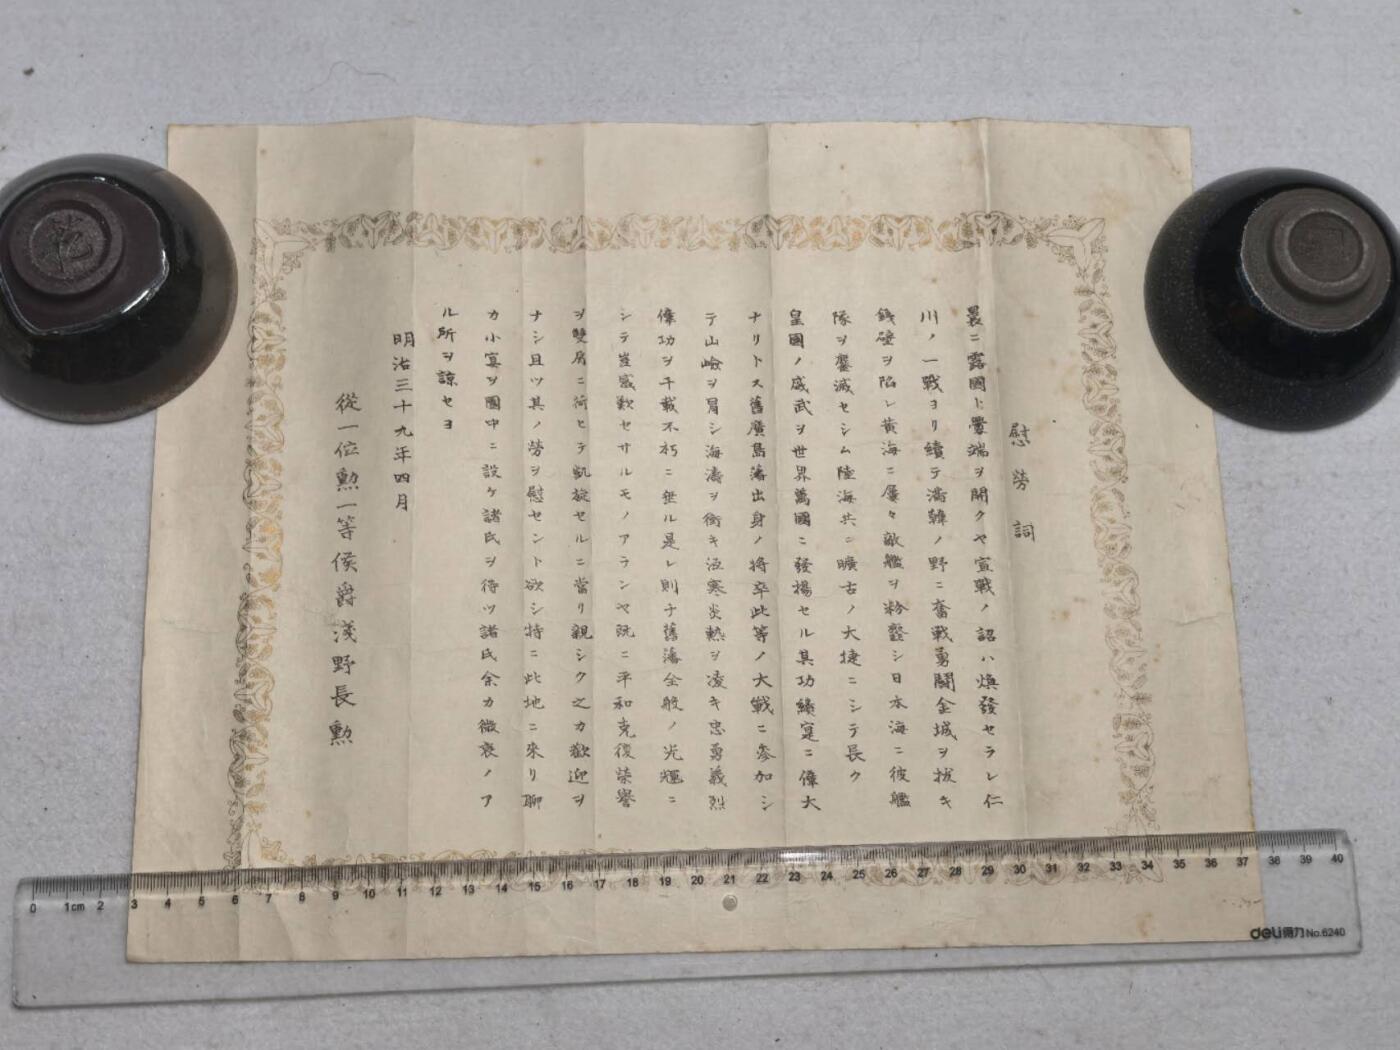 慰労詞
曩ニ露國ト釁端ヲ開クヤ宣戰ノ詔ハ煥發セラレ仁
川ノ一戰ヨリ續テ滿韓ノ野ニ奮戰勇鬪金城ヲ拔キ
鐵壁ヲ陷レ黃海ニ屢々敵艦ヲ粉韲シ日本海ニ彼艦
隊ヲ鏖滅セシム陸海共ニ曠古ノ大捷ニシテ長ク
皇國ノ威武ヲ世界萬國ニ發揚セル其功績寔ニ偉大
ナリトス舊廣島藩出身ノ將卒此等ノ大戰ニ參加シ
テ山嶮ヲ冒シ海濤ヲ衝キ沍寒炎熱ヲ凌キ忠勇義烈
偉功ヲ千載不朽ニ垂ル是レ則チ舊藩全般ノ光輝ニ
シテ豈感歎セサルモノアランヤ既ニ平和克復榮譽
ヲ雙肩ニ荷ヒテ凱旋セルニ當リ親シク之カ歡迎ヲ
ナシ且ツ其ノ勞ヲ慰セント欲シ特ニ此地ニ來リ聊
カ小宴ヲ園中ニ設ケ諸氏ヲ待ツ諸氏余カ微衷ノア
ル所ヲ諒セヨ
明治三十九年四月
從一位勲一等侯爵淺野長勲
0 1cm 2 3 4 5 6 7 8 9 10 11 12 13 14 15 16 17 18 19 20 21 22 23 24 25 26 27 28 29 30 31 32 33 34 35 36 37 38 39 40
deli得力 No.6240